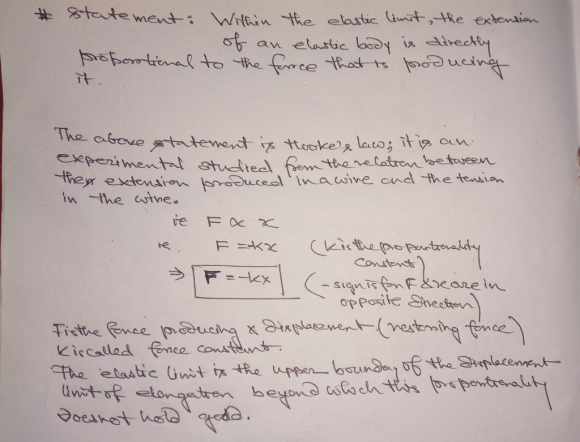 # Statement: Within the elastic limit, the extension
of an elastic body is directly
proportional to the force that is producing
it.
The above statement is Hooke's law; it is an
experimental studied from the relation between
they extension produced in a wire and the tension
in the wire.
ie F ∝ x
ie. F = kx (k is the proportionality
constant)
⇒ F = -kx (- sign is for F & x are in
opposite direction)
F is the force producing x displacement (restoring force)
K is called force constant.
The elastic limit is the upper bounday of the displacement
limit of elongation beyond which this proportionality
does not hold good.